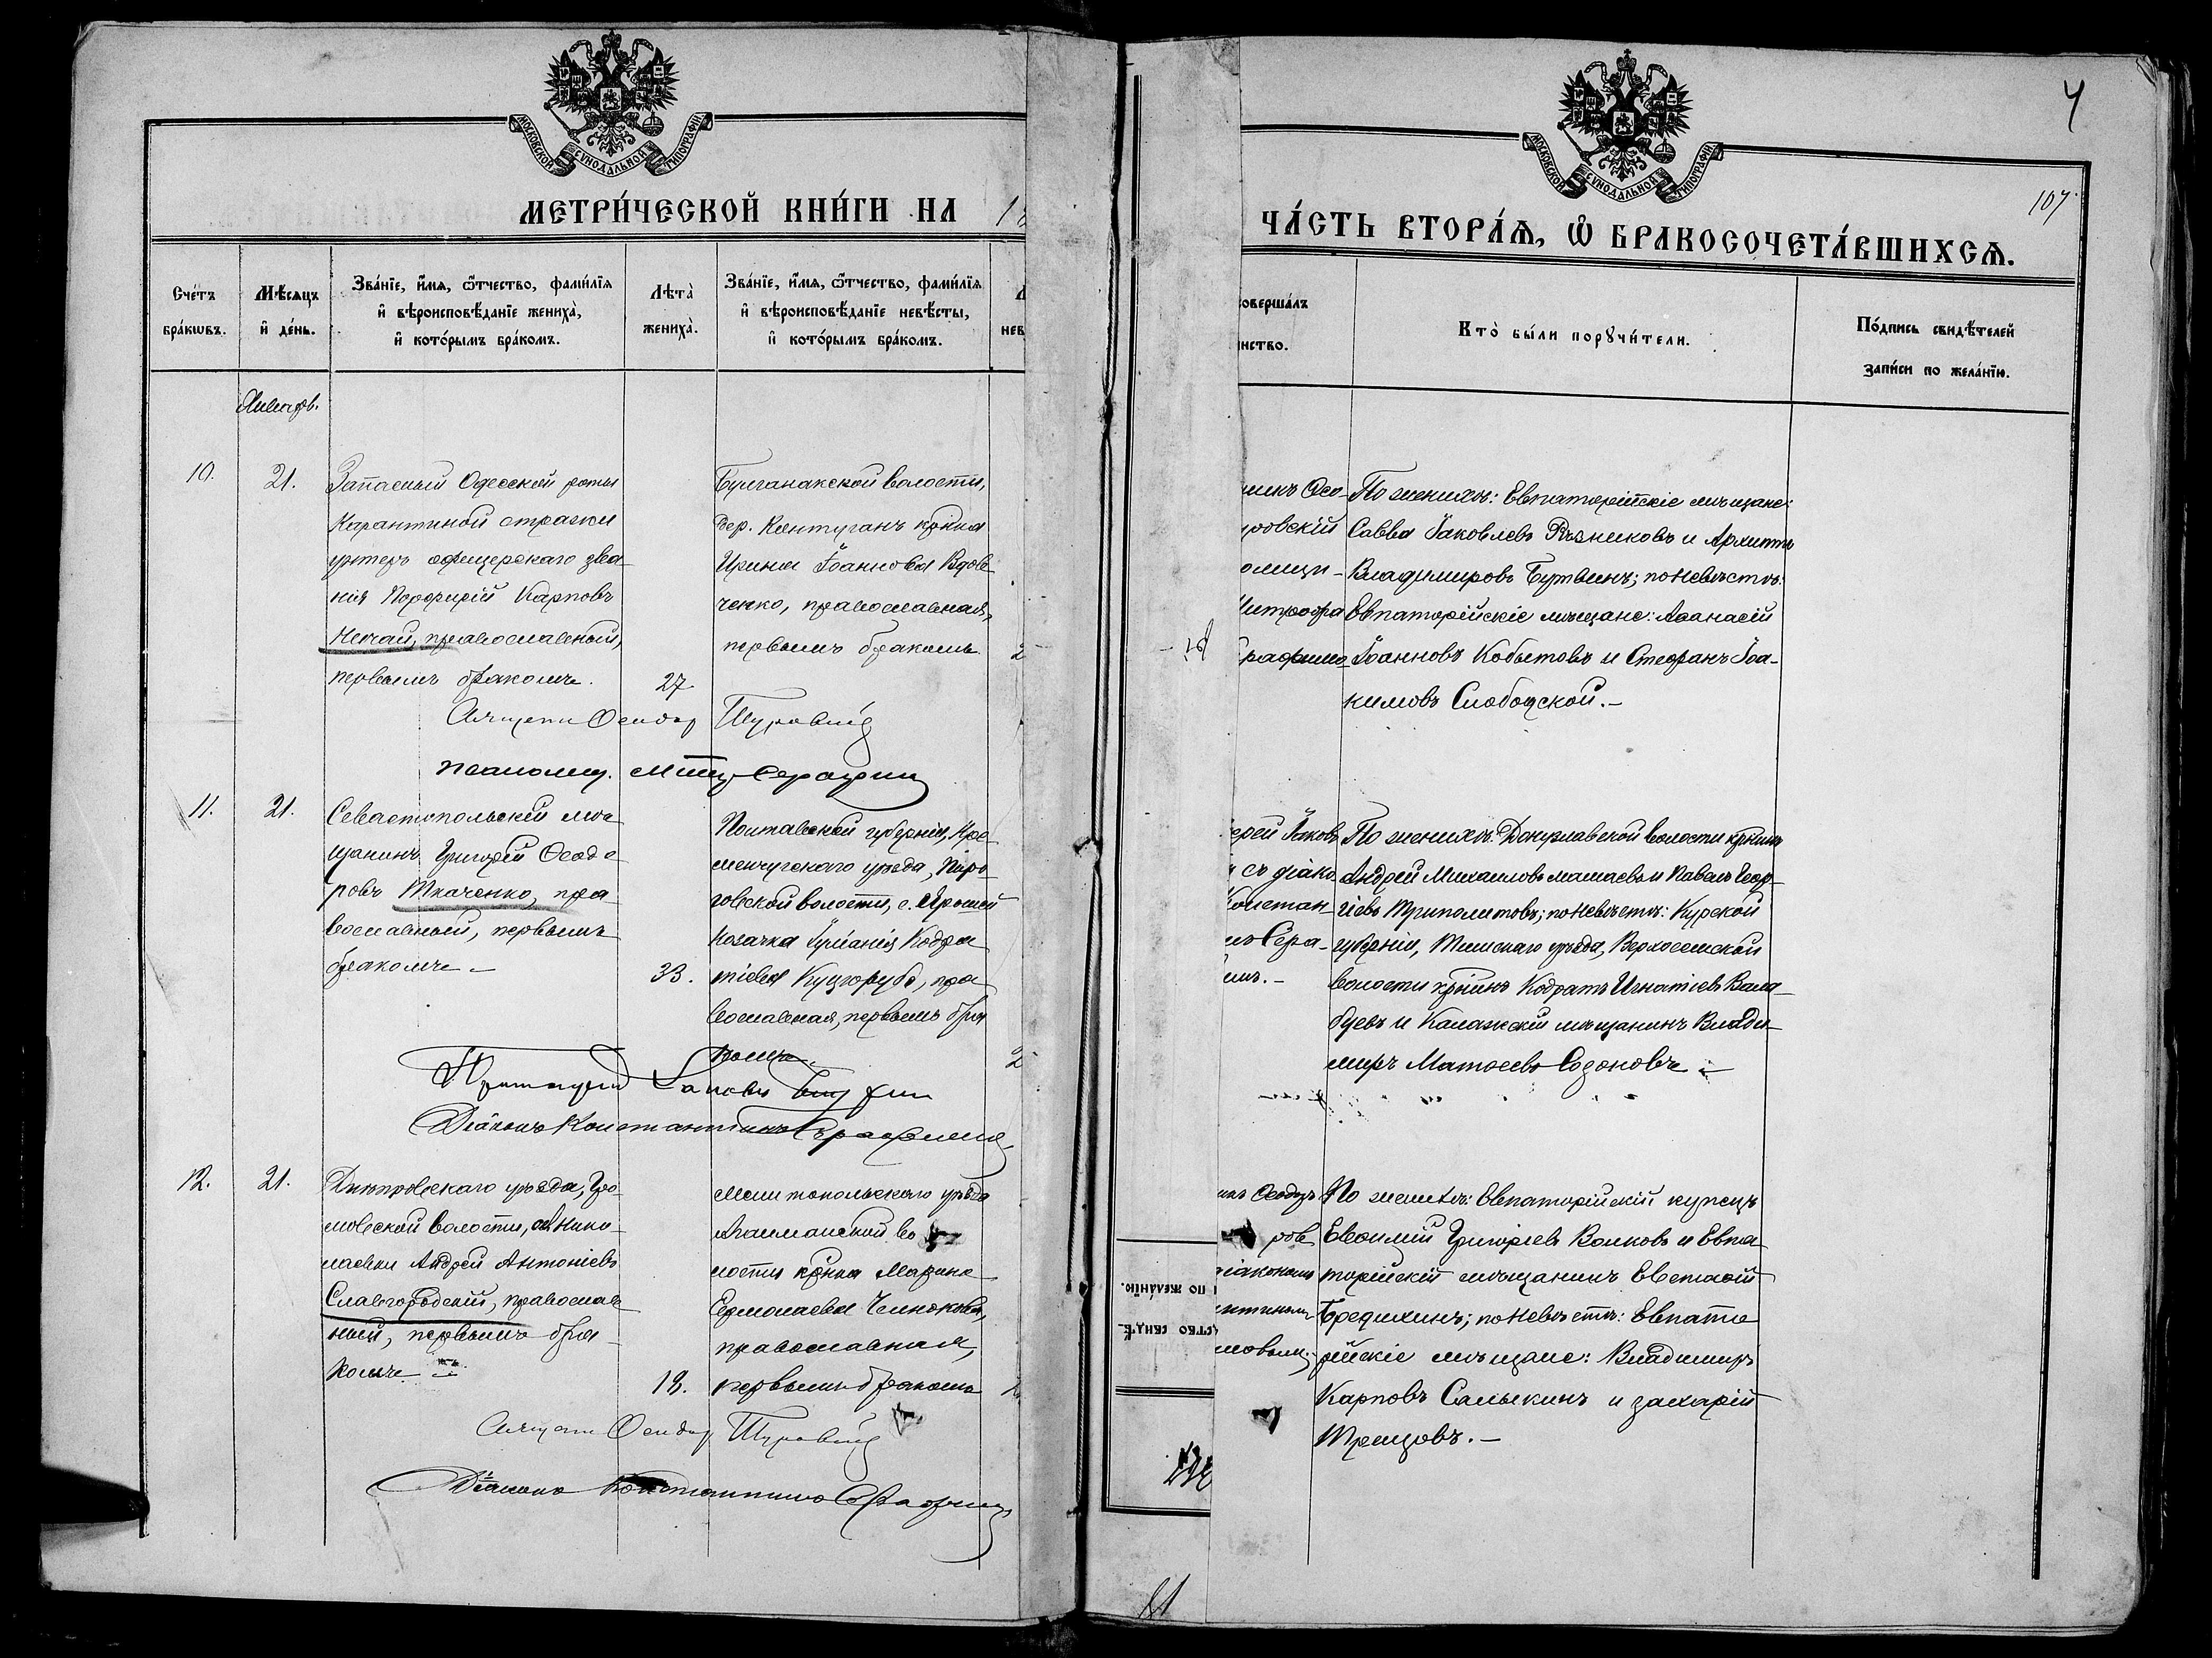 МОСКОВСКОЙ СУНОДАЛЬНОЙ ТИПОГРАФІИ
МЕТРИ́ЧЕСКОЙ КНИ́ГИ НА 18
Сче́тъ бра́кωвъ.
Мѣ́сяцъ и҆ де́нь.
Зва́нїе, и҆́мѧ, ѻ҆́тчество, фами́лїѧ
и҆ вѣроисповѣ́данїе жениха̀,
и҆ кото́рымъ бра́комъ.
Лѣ́та̀ жениха̀.
Зва́нїе, и҆́мѧ, ѻ҆́тчество, фами́лїѧ
и҆ вѣроисповѣ́данїе невѣ́сты,
и҆ кото́рымъ бра́комъ.
Январь.
10.
21.
Запасный Одесской роты
Карантиной стражи
унтеръ офицерскаго зва-
нія Порфирій Карповъ
Нечай, православный,
первымъ бракомъ.
27
Булганакской волости,
дер. Контуганъ кр̃нка
Ирина Іоаннова Вдов-
ченко, православная,
первымъ бракомъ
2
Псаломщ.
11.
21.
Севастопольскій мѣ-
щанинъ Григорій Ѳеодо-
ровъ Ткаченко, пра-
вославный, первымъ
бракомъ
33.
Полтавской губерніи, Кре-
менчугскаго уѣзда, Пиро-
говской волости, с.
козачка Іуліанія Кодра-
тіева Куцгорубъ, пра-
вославная, первымъ бра-
комъ
2
Діаконъ Константинъ
12.
21.
Днѣпровскаго уѣзда, Гро-
мовской волости, с. Нико-
лаевки Андрей Антоніевъ
Славгородскій, православ-
ный, первымъ бра-
комъ
18.
Мелитопольскаго уѣзда
Агайманской во
лости кр̃нка Марина
Ермолаева Челнокова,
православная,
первымъ бракомъ
Діаконъ Константинъ
4
107
МОСКОВСКОЙ СУНОДАЛЬНОЙ ТИПОГРАФІИ
ЧА́СТЬ ВТОРА́Ѧ, Ѽ БРАКОСОЧЕТА́ВШИХСѦ.
соверша́лъ
инство.
Кто̀ бы́ли порꙋчи́тели.
По́дпись свидѣ́телей
за́писи по жела́нїю.
никъ Ѳео-
ровскій
Митрофа
По женихѣ: Евпаторійскіе мѣщане:
Савва Іаковлевъ Рѣзниковъ и Архиппъ
Владимировъ Бутвинъ; по невѣстѣ:
Евпаторійскіе мѣщане: Аѳанасій
Іоанновъ Кобытовъ и Стефанъ Іоа-
кимовъ Слободской.
ерей Іаковъ
съ діако-
Констан-
Сера-
По женихѣ: Донузлавской волости кр̃нинъ
Андрей Михаиловъ Машаевъ и Павелъ Геор-
гіевъ Триполитовъ; по невѣстѣ: Курской
губерніи, Тимскаго уѣзда, Верхосемской
волости кр̃нинъ Кодратъ Игнатіевъ Вала-
буевъ и Калажскій мѣщанинъ Влади-
миръ Матѳеевъ Созоновъ
Ѳеодоръ
ров
діакономъ
По женихѣ: Евпаторійскій купецъ
Евѳимій Григоріевъ Волковъ и Евпа-
торійскій мѣщанинъ Евстаѳій
Бредихинъ; по невѣстѣ: Евпато
рійскіе мѣщане: Владимиръ
Карповъ Салыкинъ и Захарій